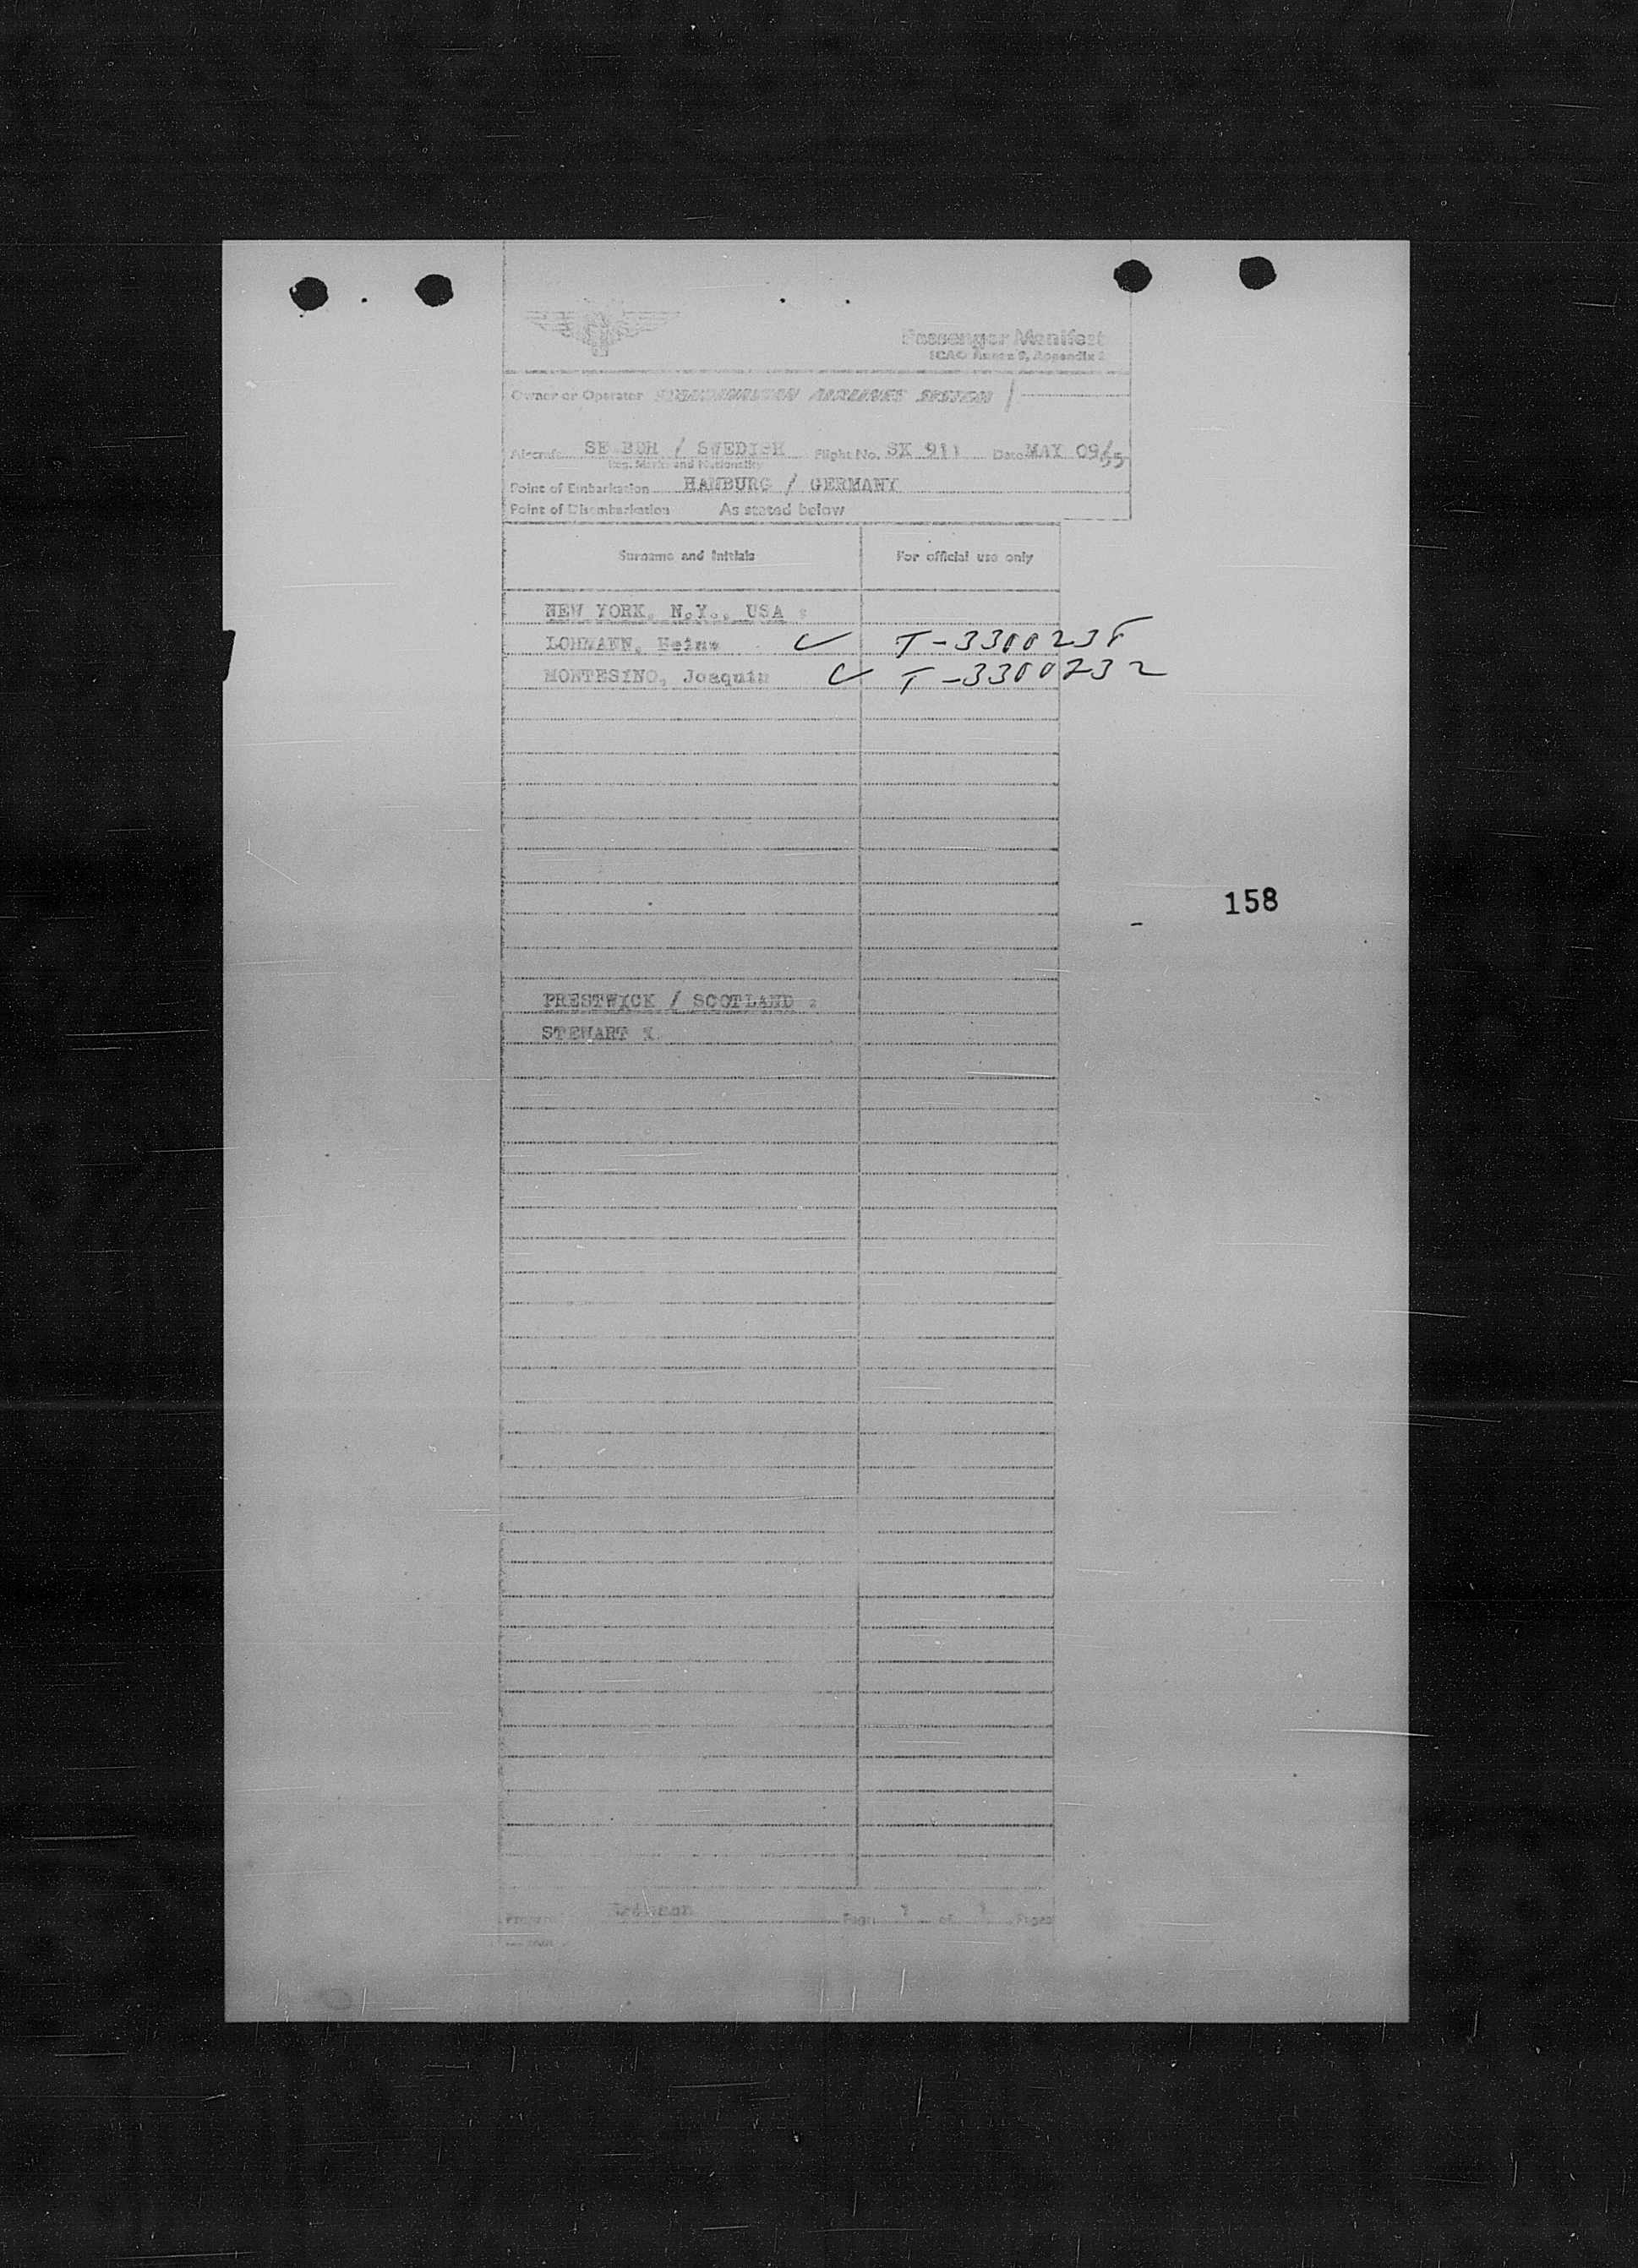 Passenger Manifest
ICAO Annex 9, Appendix 2
Owner or Operator SCANDINAVIAN AIRLINES SYSTEM /
Aircraft SE-BDH / SWEDISH Flight No. SK 911 Date MAY 09/55
Reg. Marks and Nationality
Point of Embarkation HAMBURG / GERMANY
Point of Disembarkation As stated below
Surname and Initials For official use only
NEW YORK, N.Y., USA :
LOHMANN, Heinz ✓ T-3300238
MONTESINO, Joaquin ✓ T-3300232
158
PRESTWICK / SCOTLAND :
STEWART
Page 1 of 1 Pages